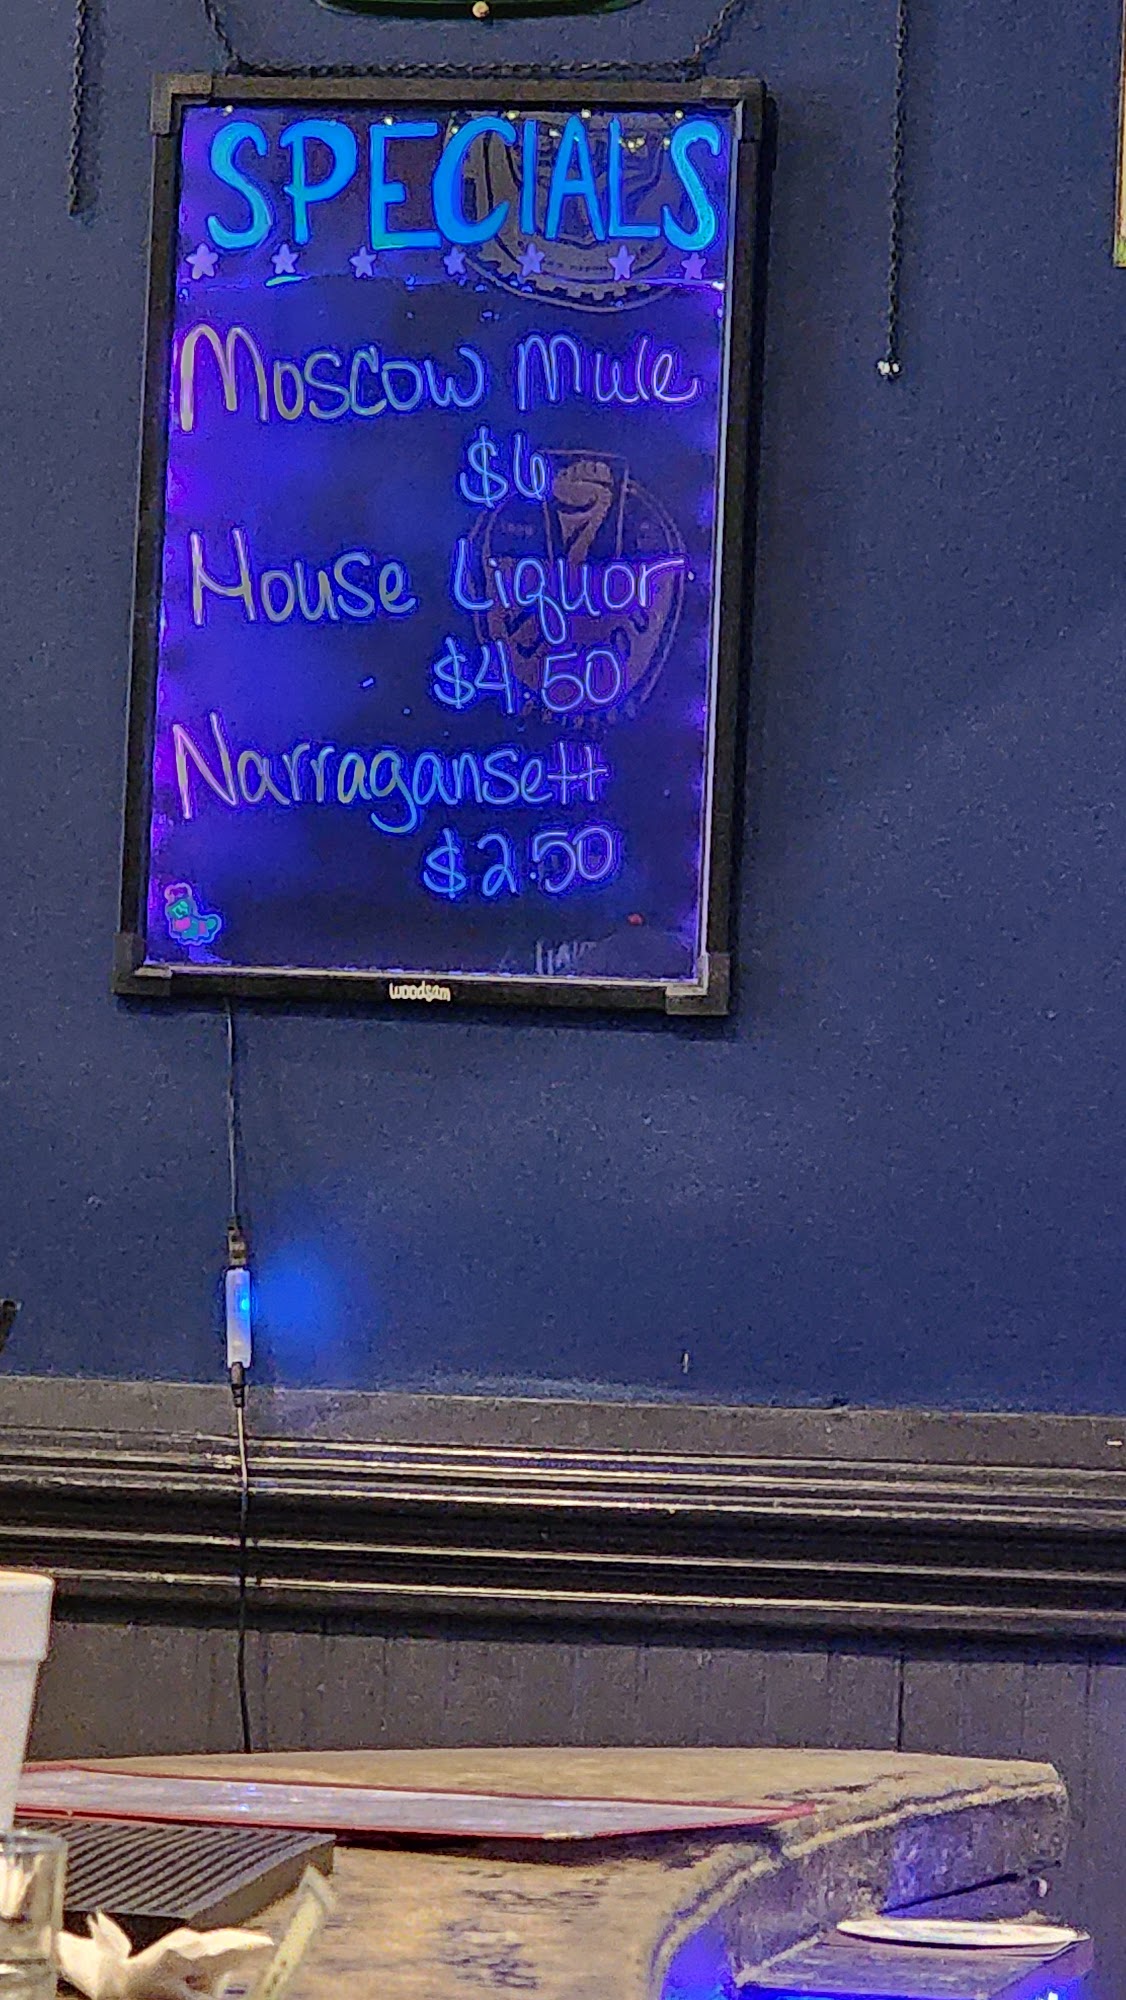 SPECIALS
Moscow Mule
$6
House Liquor
$4.50
Narragansett
$2.50
woodsam